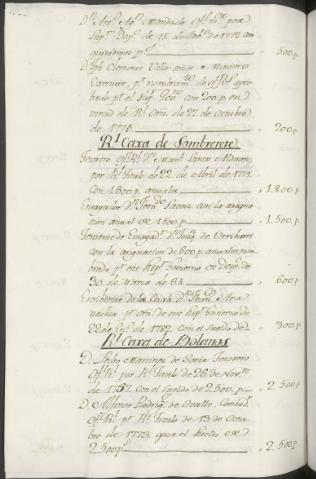 Dn. Anto. Mendarte Ofl. mr. por
Supr. Desp. de 18. de Feb. de 1772. con
quinientos p.s 500,,
D. Jph Clemente Villa-señor Ministro
Executor, pr. nombrim.to de ofs. Rs. apro-
bado pr. el Supr. Gov.no con 200 p. en
virtud de Rl. Orn. de 22. de Octubre
de 1776. 200,,
Rl. Caxa de Sombrerete
Tesorero Ofl. Rl. Dn. Manl.
por Rl. Titulo de 22. de Abril de 1779.
con 1.800 p. anuales 1.800
Ensayador Dn. Saenz con la asigna-
cion anual de 1.500 p. 1.500,,
Teniente de Ensayor. Dn. de Orriharri
con la asignacion de 600 p. anuales nom-
brado pr. este Supr. Govierno en Desp. de
30. de Marzo de 81 600,,
Escribiente de la Caxa Dn. Franco.
pr. orn. de este Supr. Govierno de
22 de de 1782. con el Sueldo de 300,,
Rl. Caxa de Bolaños
D. Pedro Martinez de Soria Tesorero
Ofl. Rl. por Rl. Titulo de 26. de Nove.
de 1757. con el Sueldo de 2.500 p. 2.500
D. Alfonso Rodrig. de Ovalle, Contad.
Ofl. Rl. pr. Rl. Titulo de 13 de Octu-
bre de 1773. goza el Sueldo de
2.500 p.s 2.500